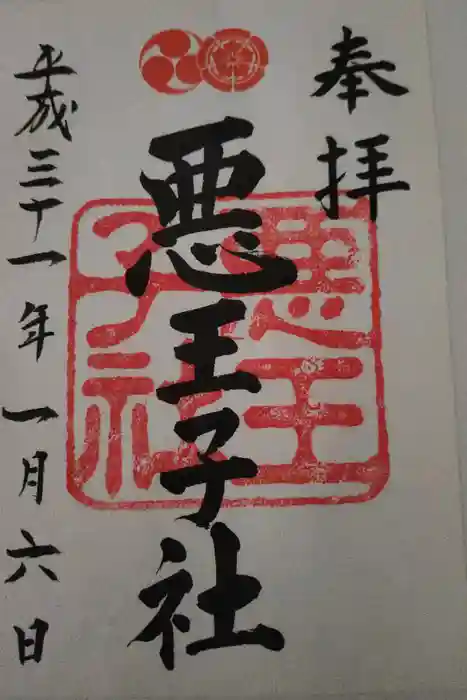 奉拝
悪王子社
悪王子社
平成三十一年一月六日